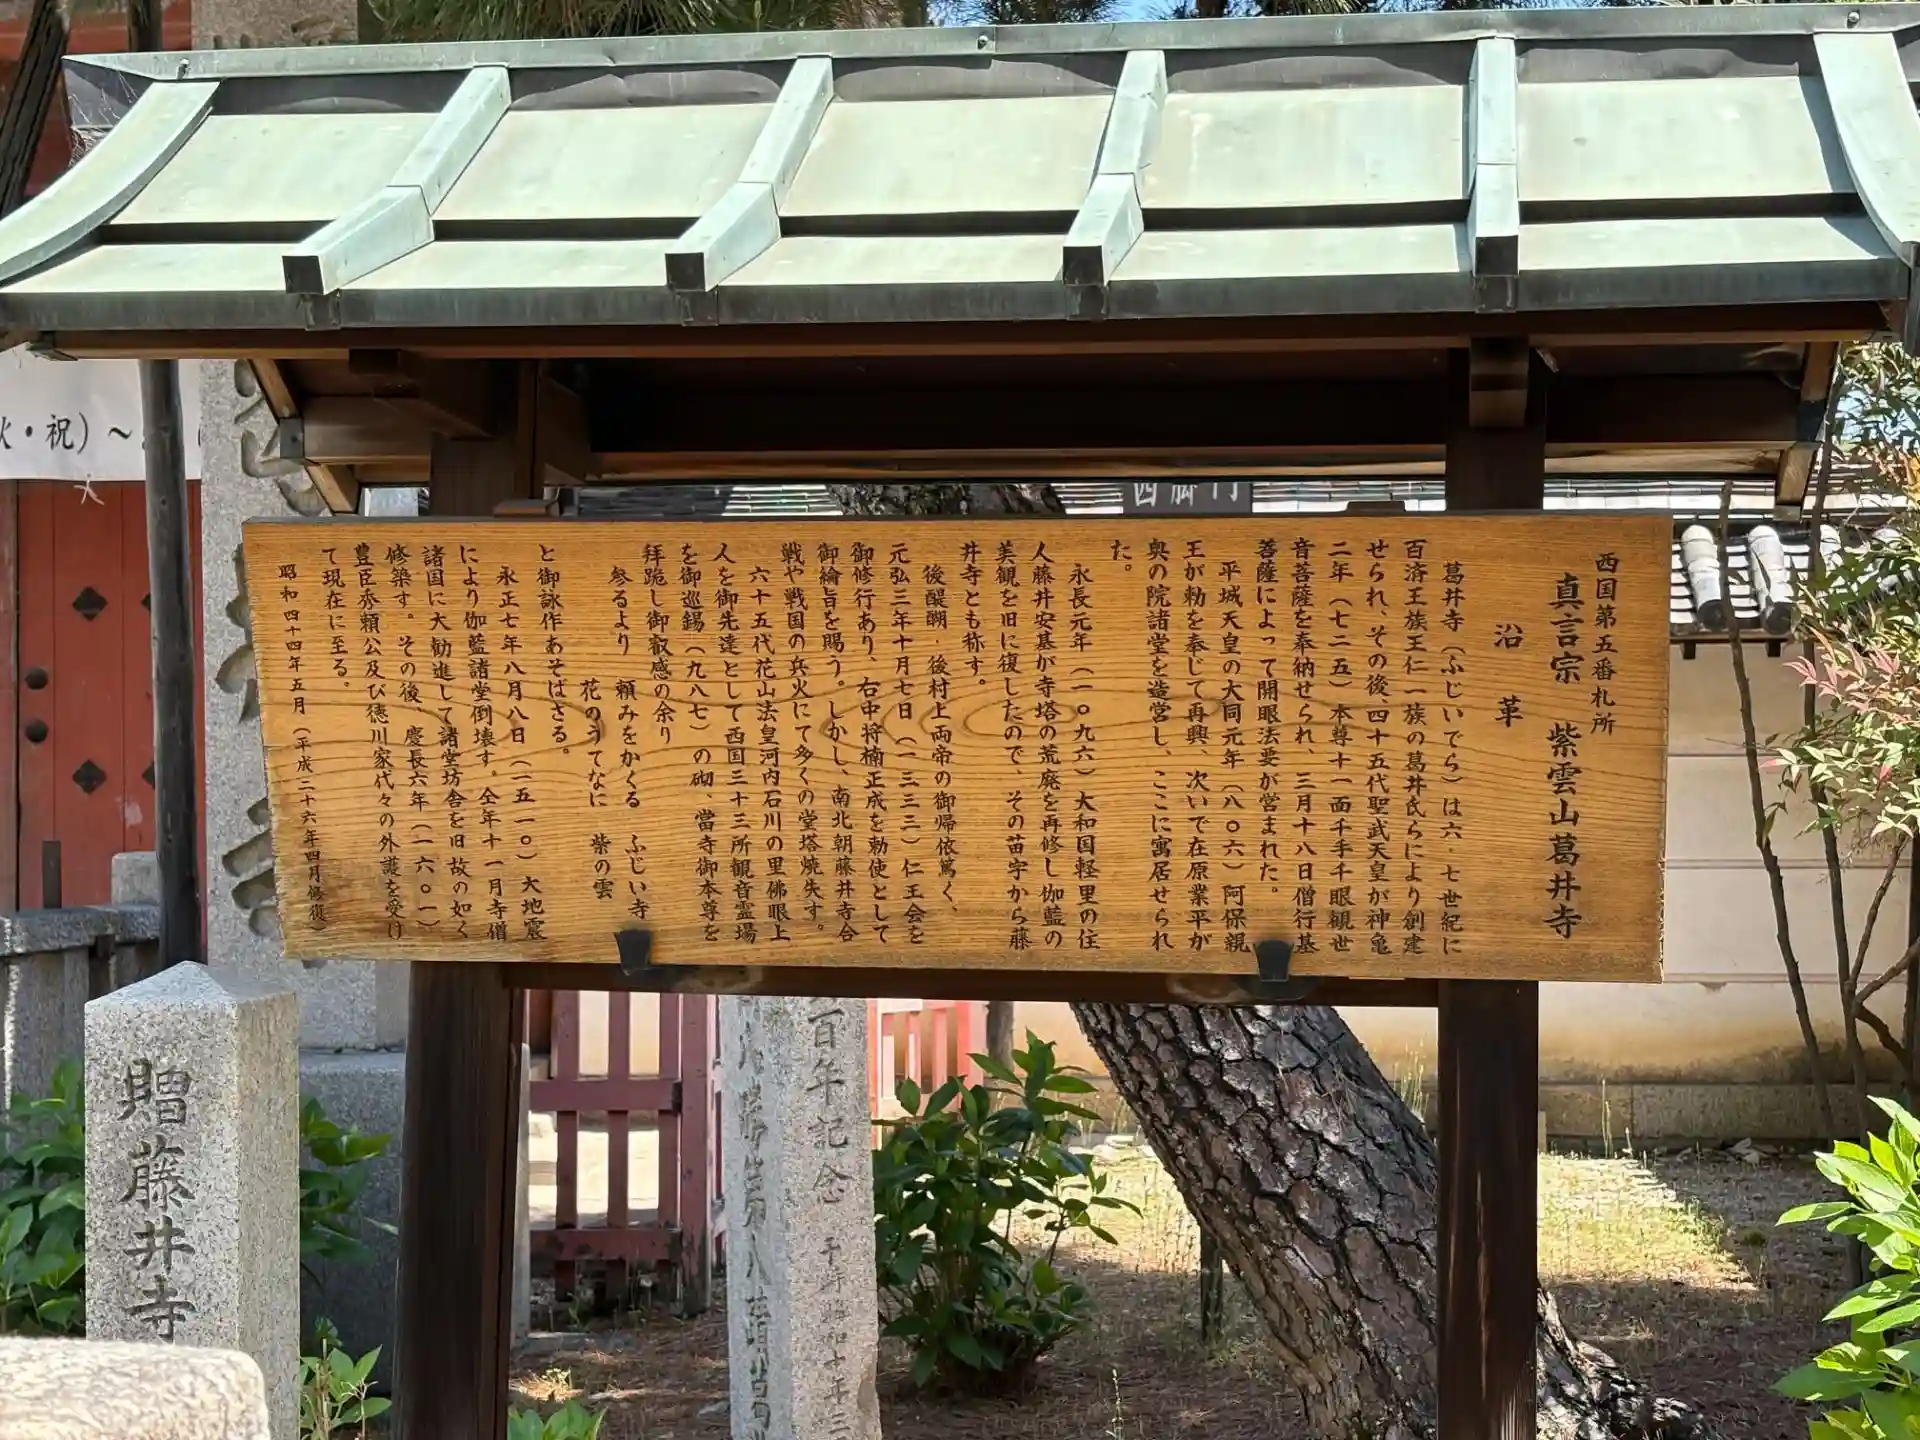 西国第五番札所
真言宗　紫雲山葛井寺
沿革
葛井寺（ふじいでら）は六・七世紀に
百済王族王仁一族の葛井氏らにより創建
せられ、その後、四十五代聖武天皇が神亀
二年（七二五）本尊十一面千手千眼観世
音菩薩を奉納せられ、三月十八日僧行基
菩薩によって開眼法要が営まれた。
平城天皇の大同元年（八〇六）阿保親
王が勅を奉じて再興、次いで在原業平が
奥の院諸堂を造営し、ここに寓居せられ
た。
永長元年（一〇九六）大和国軽里の住
人藤井安基が寺塔の荒廃を再修し伽藍の
美観を旧に復したので、その苗字から藤
井寺とも称す。
後醍醐・後村上両帝の御帰依篤く、
元弘三年十月七日（一三三三）仁王会を
御修行あり、右中将楠正成を勅使として
御綸旨を賜う。しかし、南北朝藤井寺合
戦や戦国の兵火にて多くの堂塔焼失す。
六十五代花山法皇河内石川の里佛眼上
人を御先達として西国三十三所観音霊場
を御巡錫（九八七）の砌、當寺御本尊を
拝跪し御叡感の余り
参るより　頼みをかくる　ふじい寺
花のうてなに　紫の雲
と御詠作あそばさる。
永正七年八月八日（一五一〇）大地震
により伽藍諸堂倒壊す。仝年十一月寺僧
諸国に大勧進して諸堂坊舎を旧故の如く
修築す。その後、慶長六年（一六〇一）
豊臣秀頼公及び徳川家代々の外護を受け
て現在に至る。
昭和四十四年五月（平成二十六年四月修復）
西脚門
・祝）～
贈藤井寺
百年記念